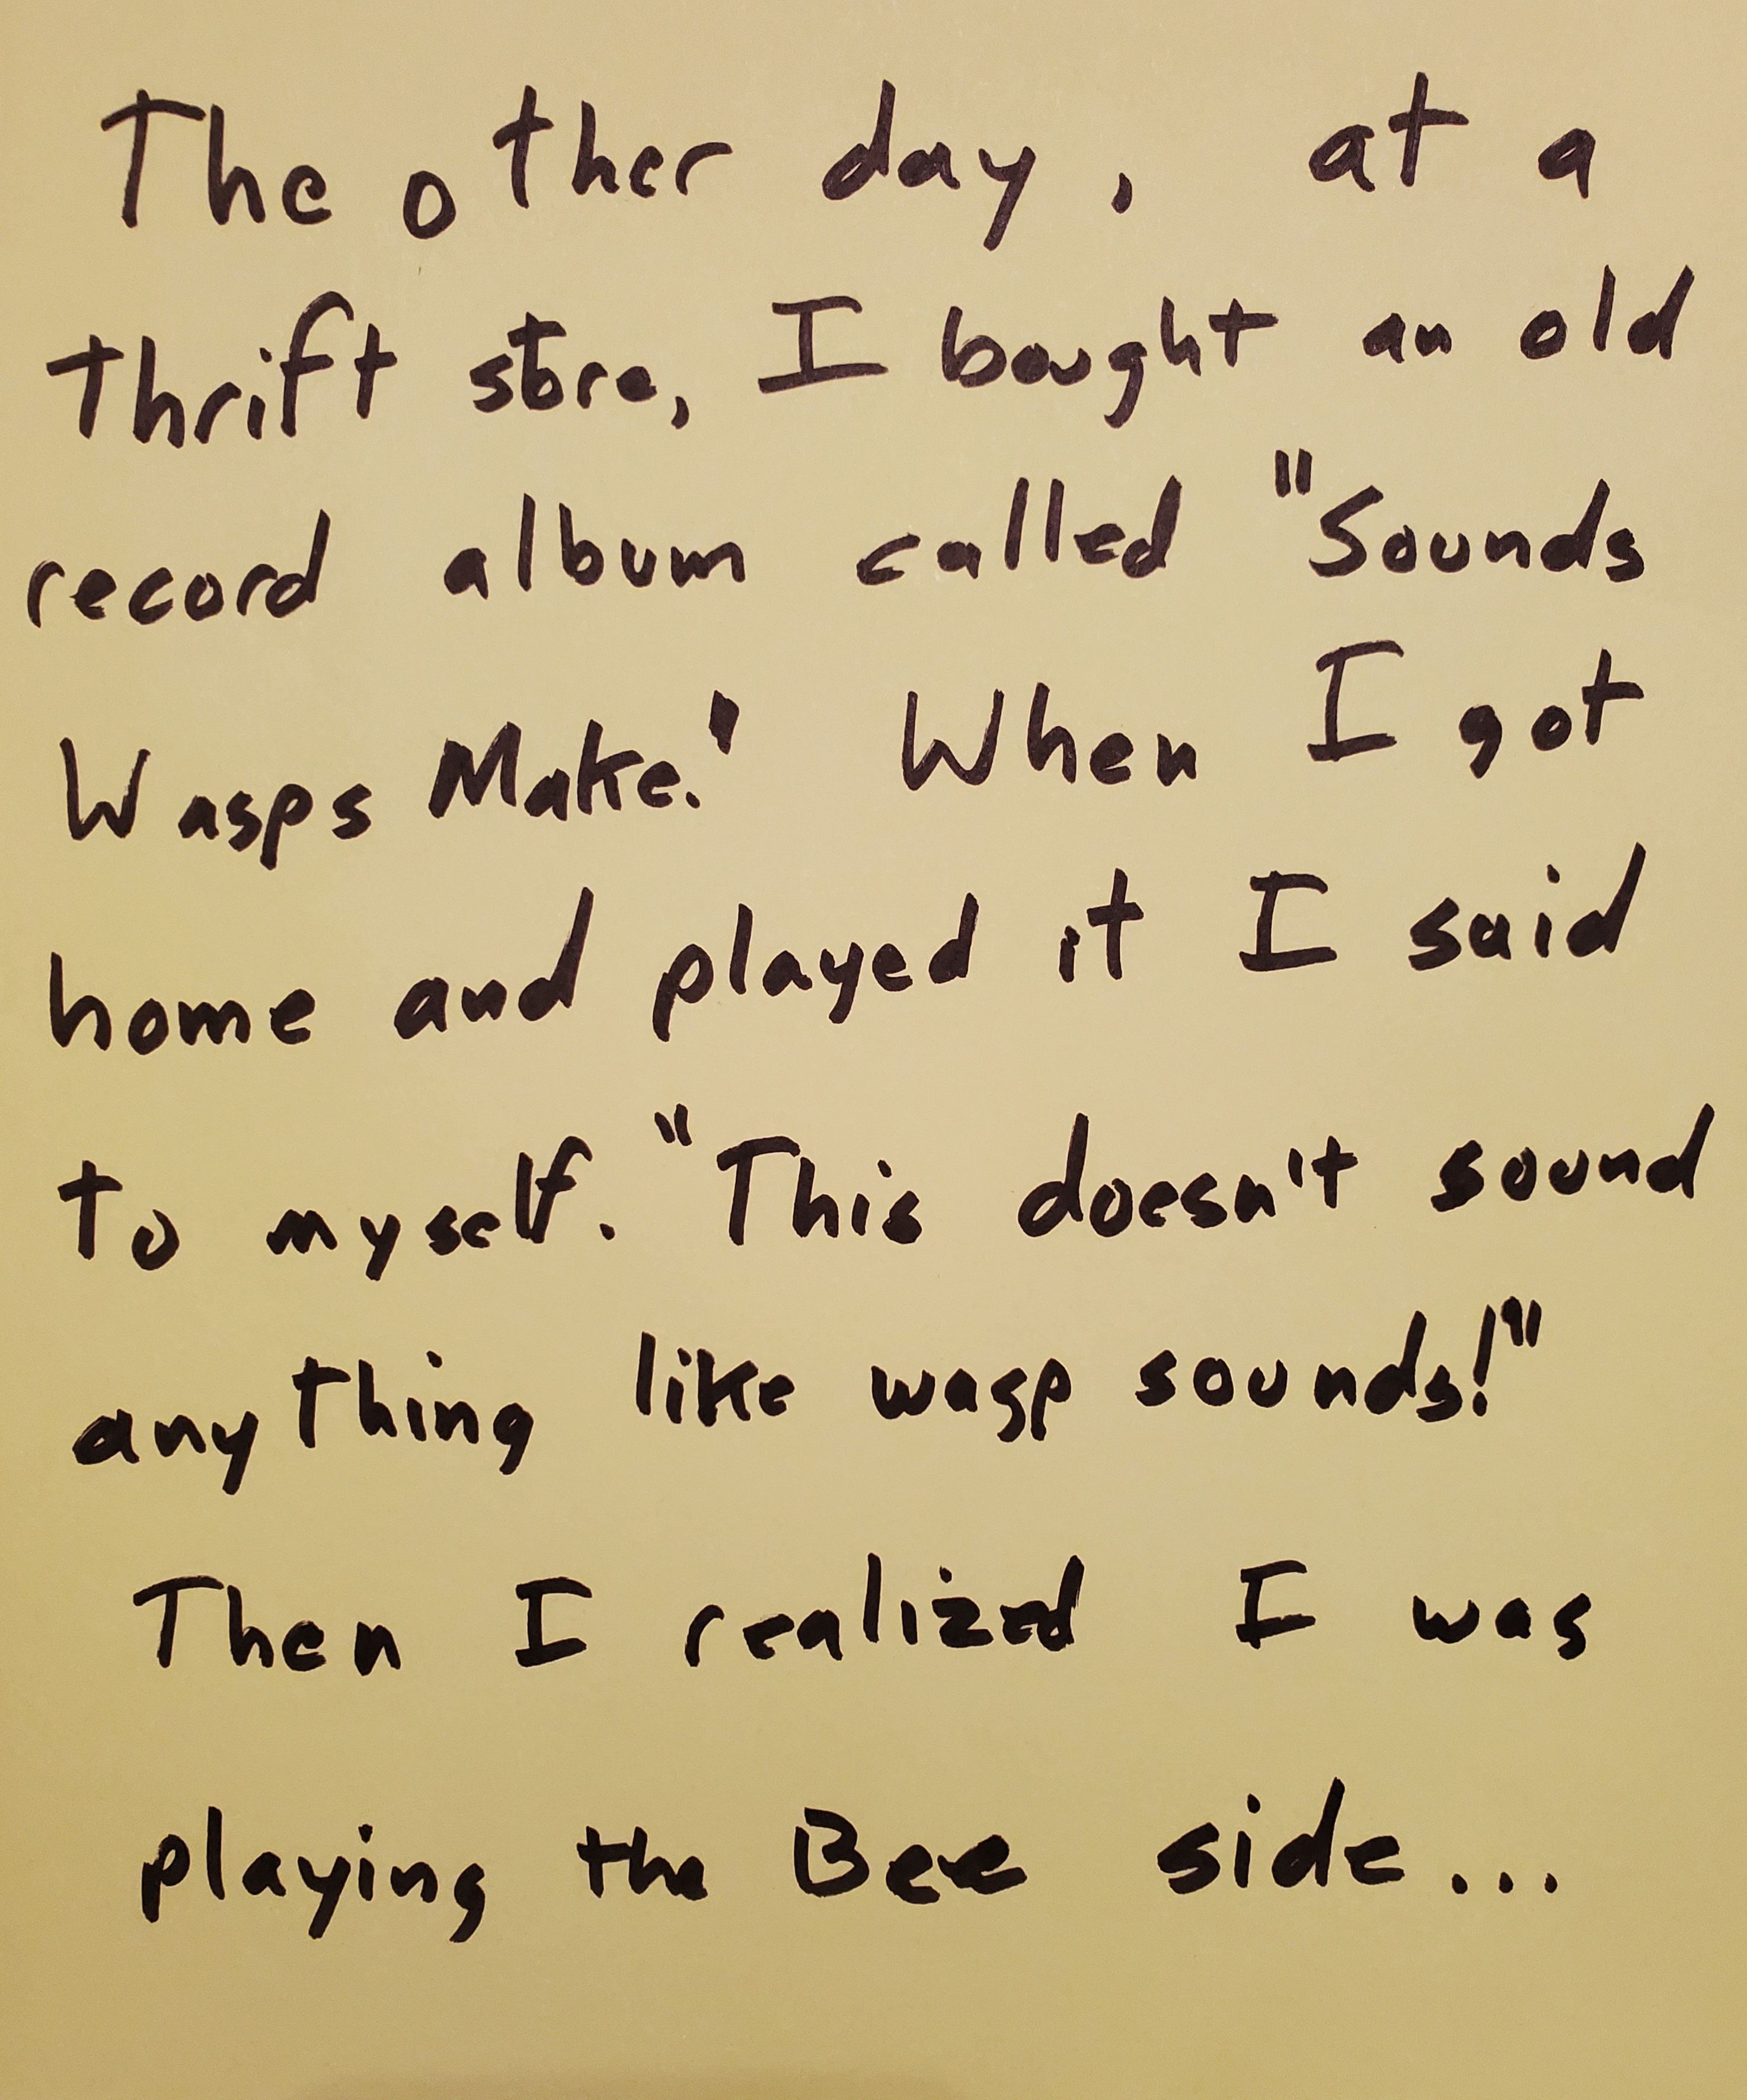 The other day, at a
thrift store, I bought an old
record album called "Sounds
Wasps Make." When I got
home and played it I said
to myself. "This doesn't sound
anything like wasp sounds!"
Then I realized I was
playing the Bee side...